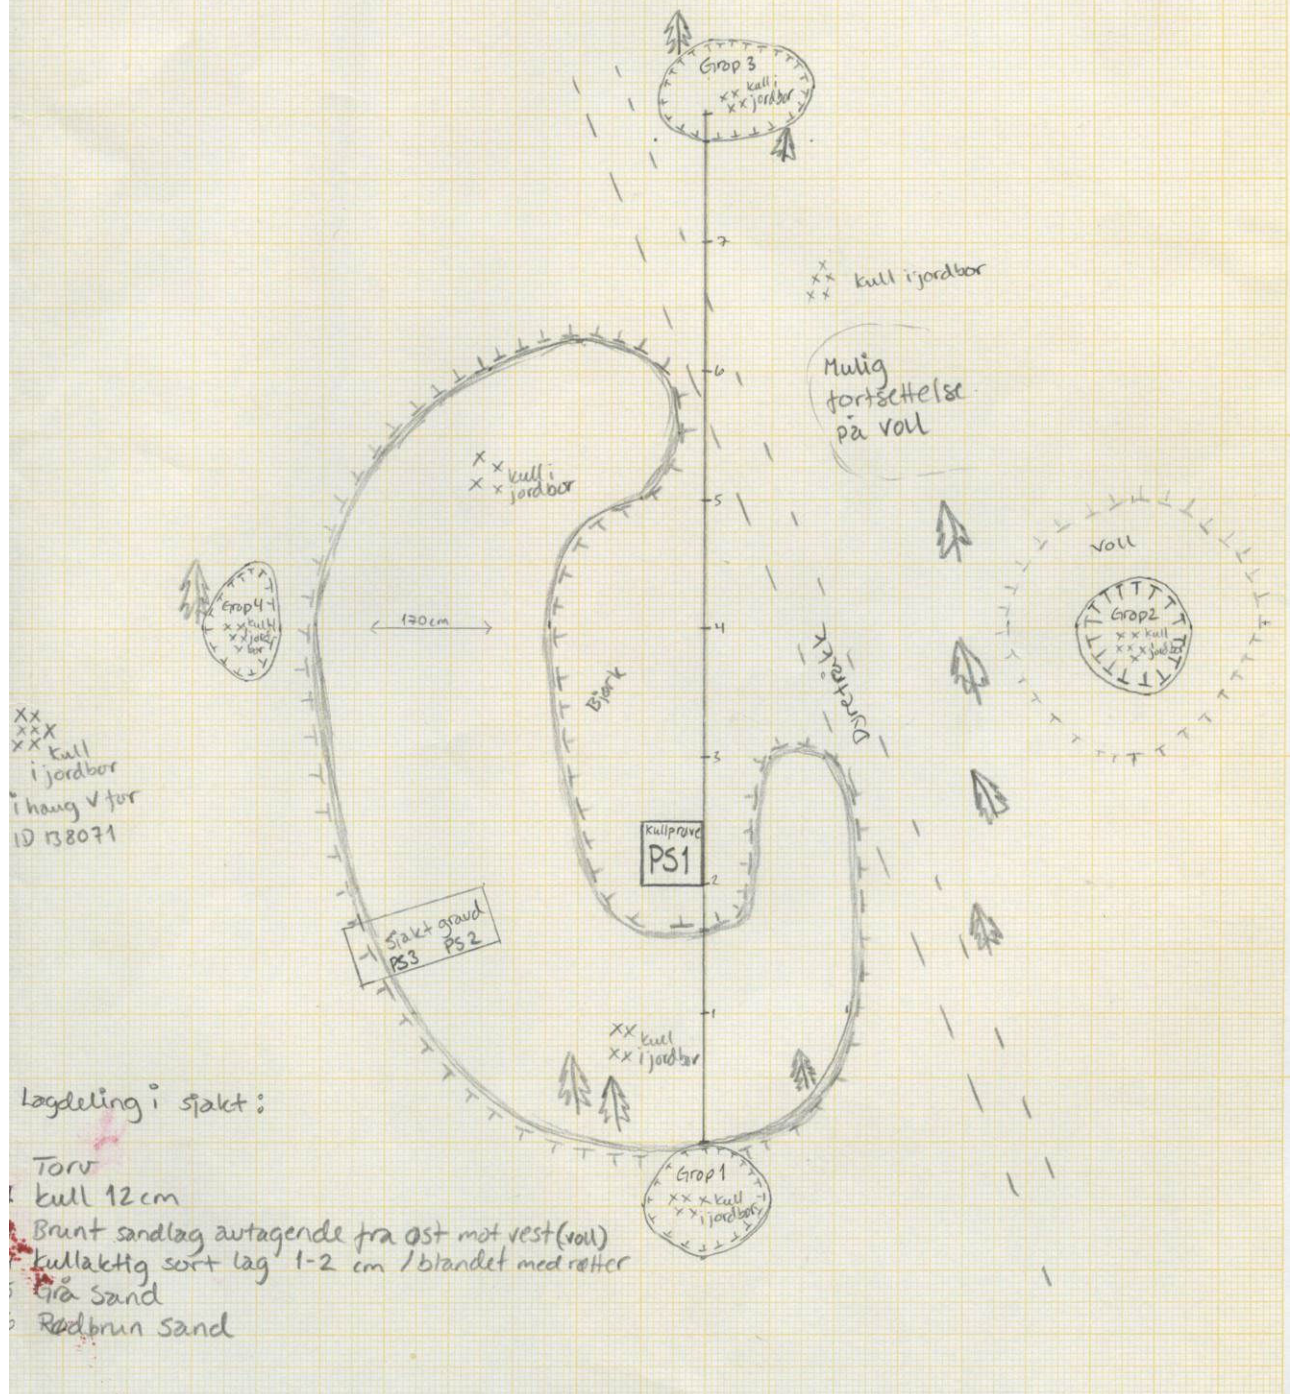 Grop 3
xx kull i
xx jordbor
7
kull i jordbor
6
Mulig
fortsettelse
på voll
kull i
jordbor
5
voll
Grop 4
kull
i jord
bor
170cm
4
Grop2
kull
i jordbor
Bjørk
Dyretråkk
kull
i jordbor
i haug V for
ID 138071
3
Kullprøve
PS1
2
Sjakt gravd
PS3 PS2
1
kull
i jordbor
Lagdeling i sjakt:
Torv
kull 12 cm
Brunt sandlag avtagende fra øst mot vest (voll)
kullaktig sort lag 1-2 cm / blandet med røtter
Grå sand
Rødbrun sand
Grop1
kull
i jordbor